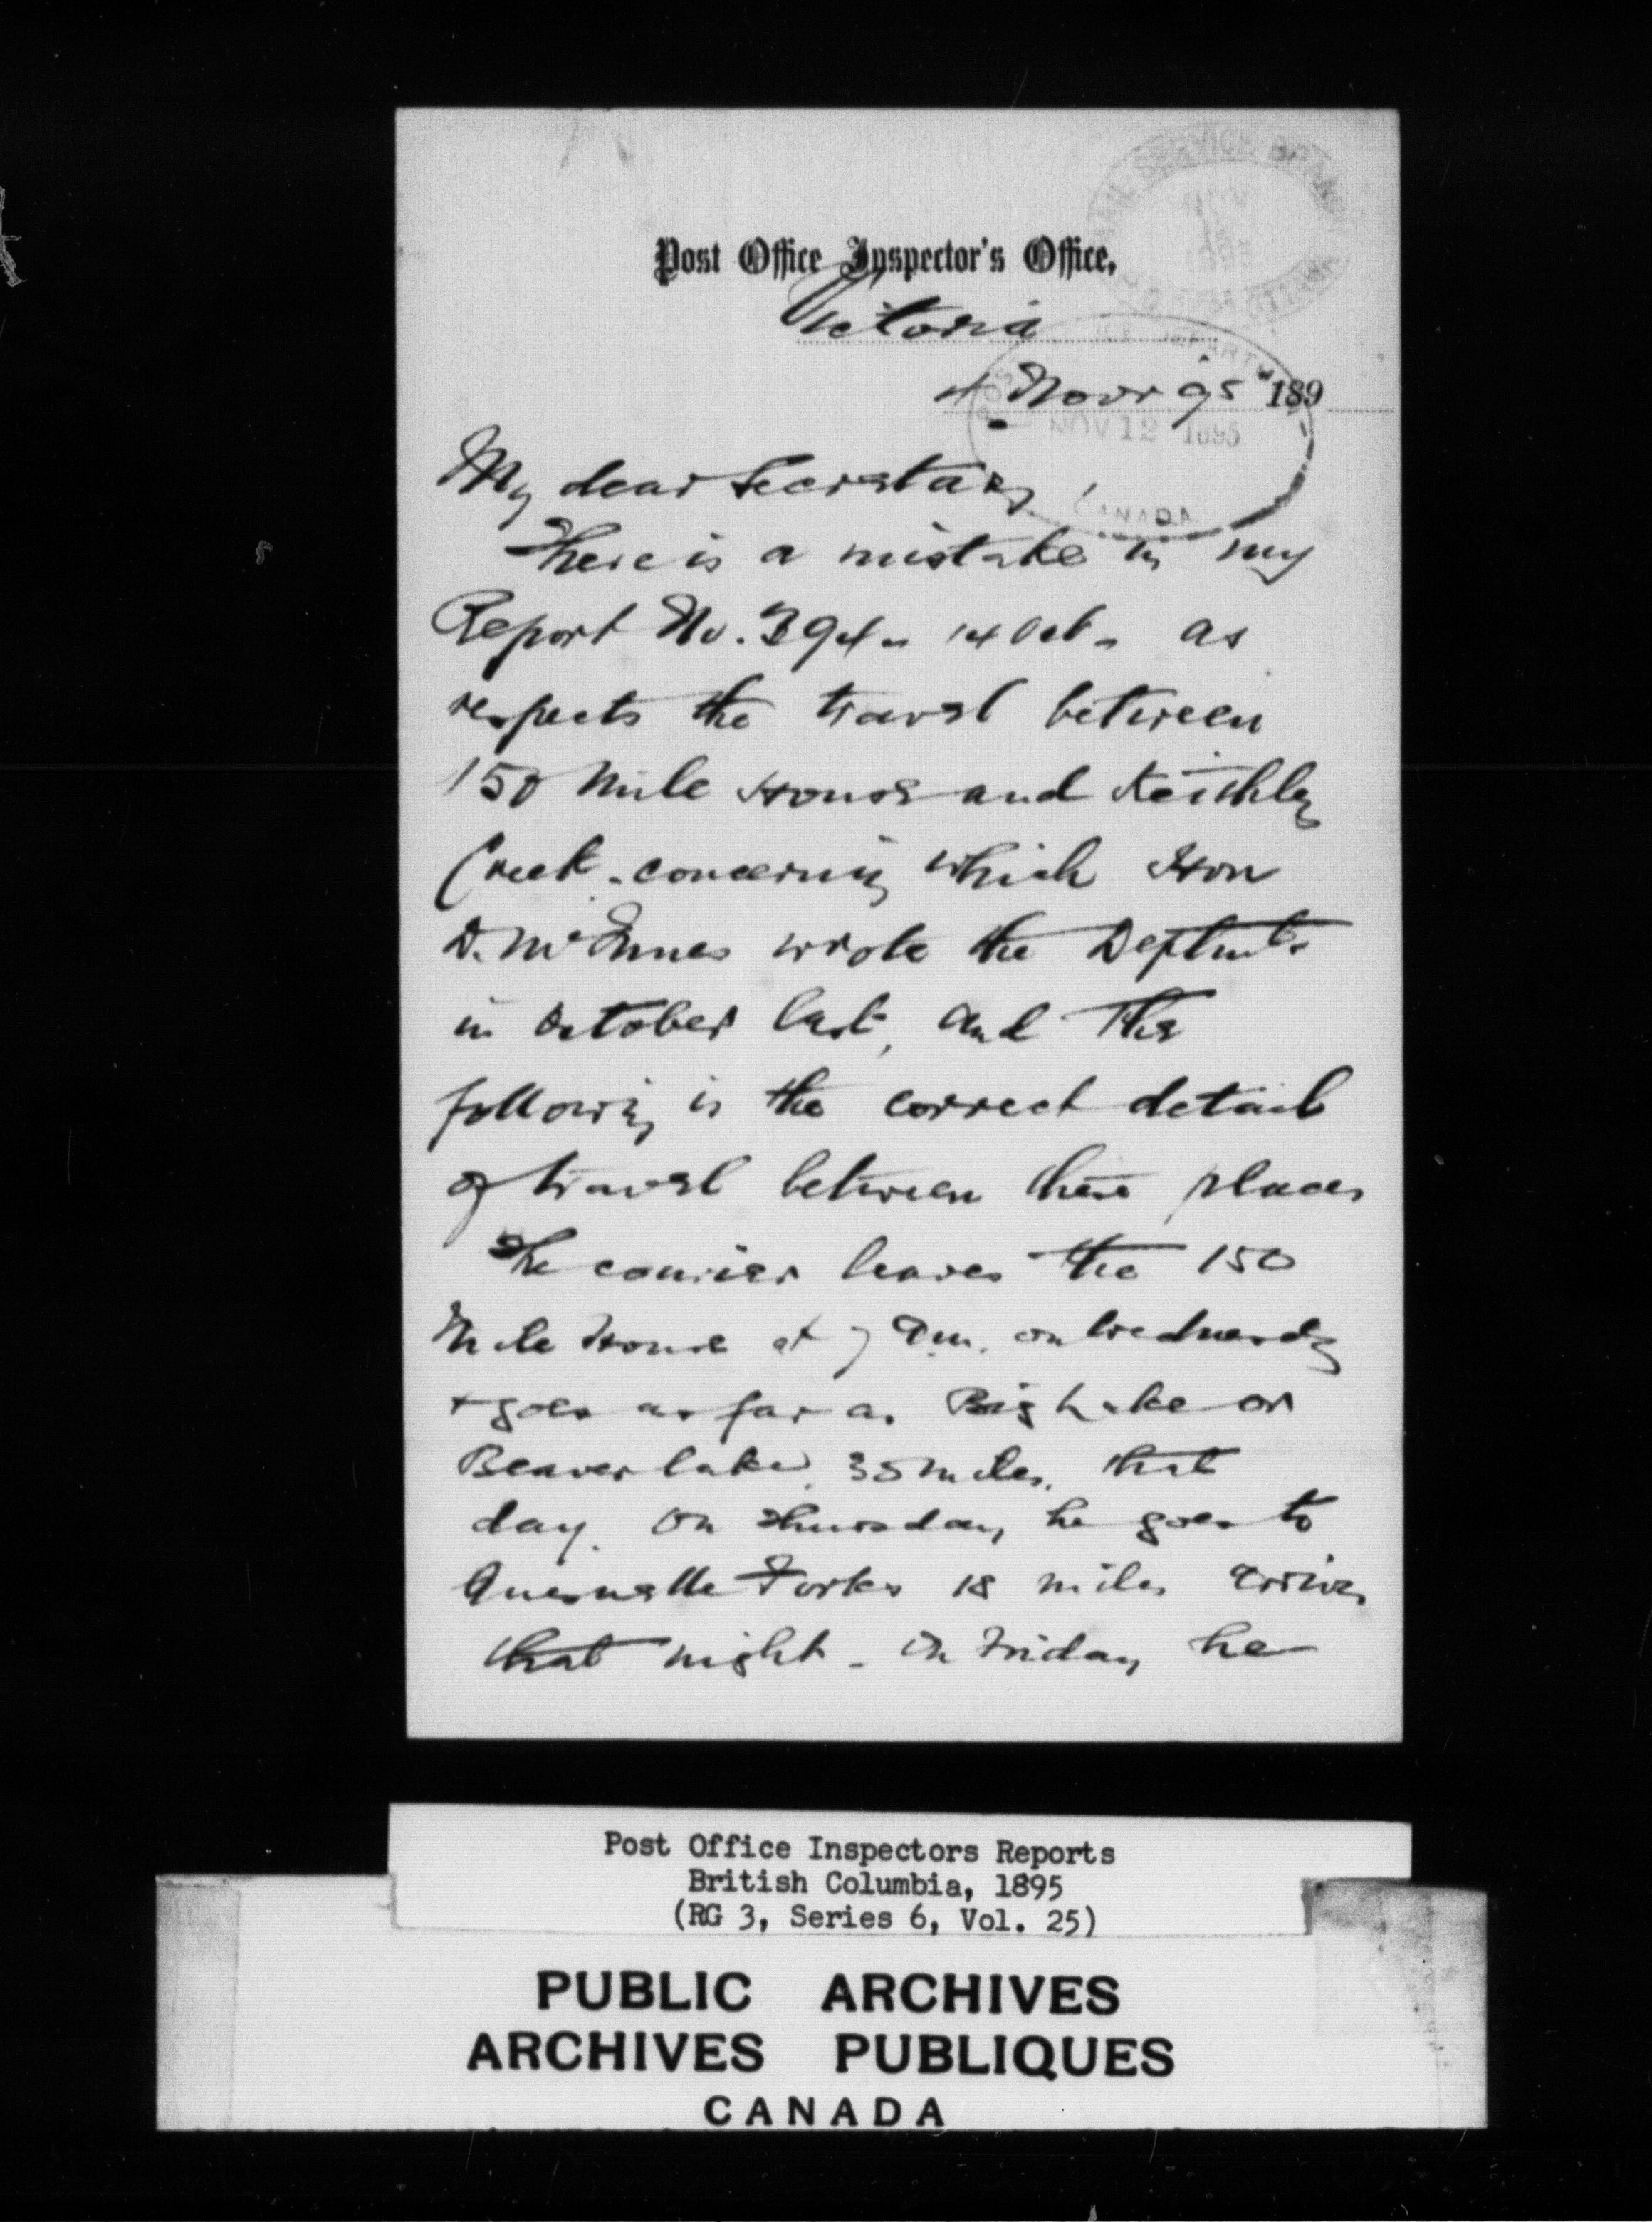 MAIL SERVICE BRANCH
NOV
Post Office Inspector's Office,
Victoria
4 Novr 95 189
NOV 12 1895
CANADA
My dear Secretary
There is a mistake in my
Report No. 394 - 14 Oct - as
respects the travel between
150 Mile House and Keithley
Creek - concerning which Hon
D. McInnes wrote the Deptmt.
in October last, and the
following is the correct detail
of travel between these places
The courier leaves the 150
Mile House at 7 am. on Wednesday
+ goes as far as Big Lake or
Beaver lake, 35 miles, that
day. On Thursday he goes to
Quesnelle Forks 18 miles arrives
that night - On Friday he
Post Office Inspectors Reports
British Columbia, 1895
(RG 3, Series 6, Vol. 25)
PUBLIC ARCHIVES
ARCHIVES PUBLIQUES
CANADA